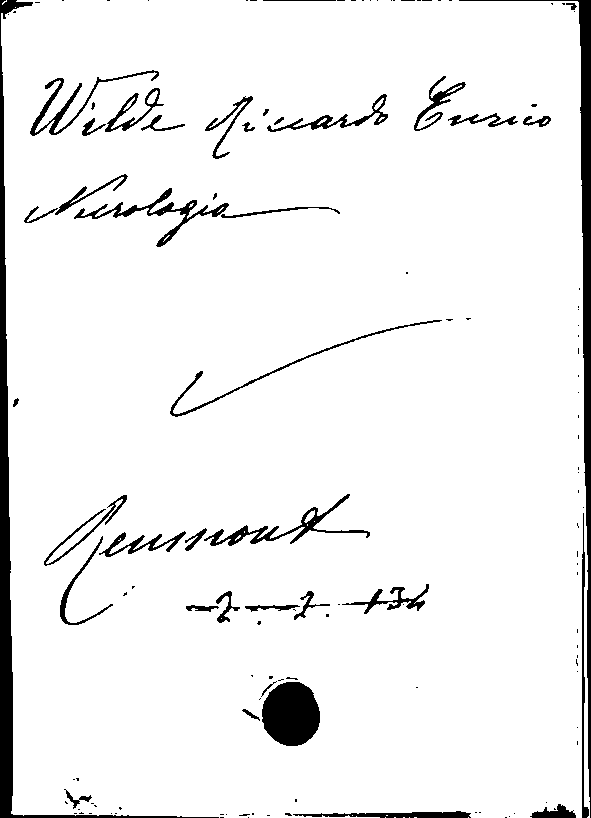 Wilde Riccardo Enrico
Necrologia
Reumont
2. 2. 134